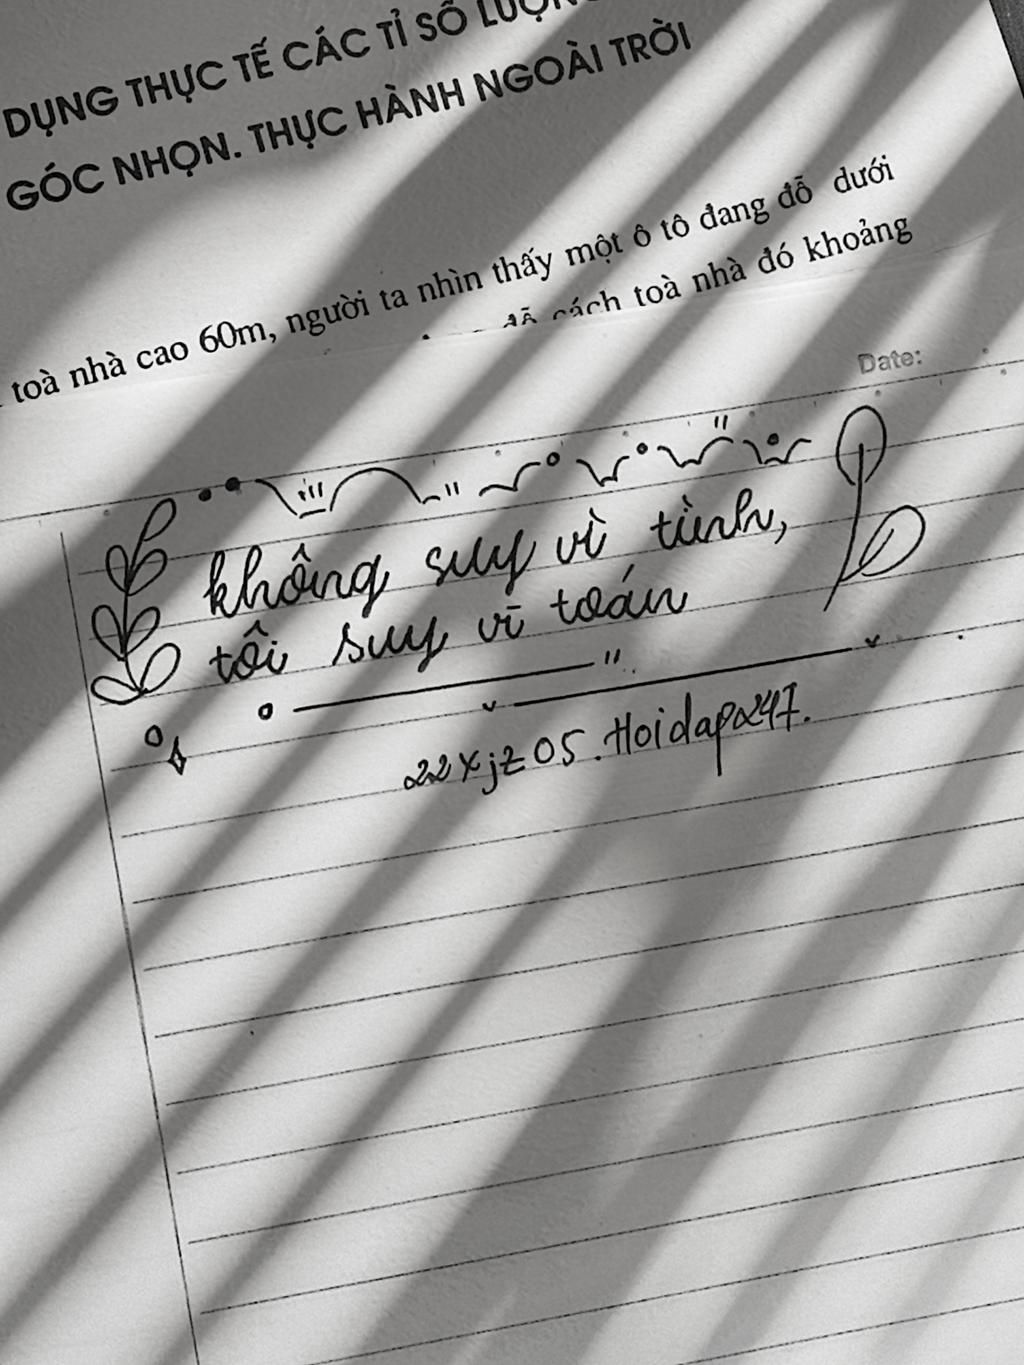 DỤNG THỰC TẾ CÁC TỈ SỐ LƯỢNG
GÓC NHỌN. THỰC HÀNH NGOÀI TRỜI
toà nhà cao 60m, người ta nhìn thấy một ô tô đang đỗ dưới
đỗ cách toà nhà đó khoảng
Date:
không suy vì tình,
tôi suy vì toán
22xjz05.Hoidap247.